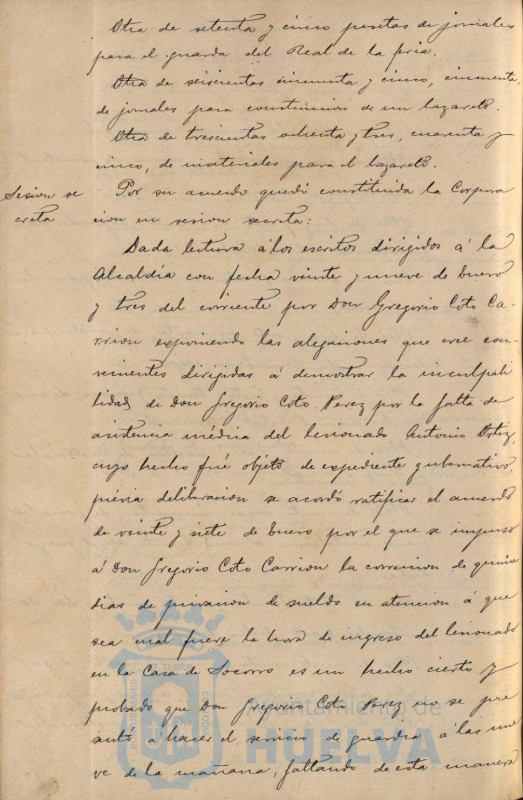 Otra de setenta y cinco pesetas de jornales
para el guarda del Real de la feria.
Otra de seiscientas cincuenta y cinco, cincuenta
de jornales para constitucion de un lazareto.
Otra de trescientas ochenta y tres, cuarenta y
cinco, de materiales para el lazareto.
Sesion se
creta
Por su acuerdo quedó constituida la Corpora
cion en sesion secreta:
Dada lectura á los escritos dirigidos á la
Alcaldía con fecha veinte y nueve de Enero
y tres del corriente por Don Gregorio Coto Ca-
rrion exponiendo las alegaciones que cree con-
venientes dirigidas á demostrar la inculpabi
lidad de Don Gregorio Coto Perez por la falta de
asistencia médica del lesionado Antonio Ortiz,
cuyo hecho fué objeto de expediente gubernativo,
prévia deliberacion se acordó ratificar el acuerdo
de veinte y siete de Enero por el que se impuso
á Don Gregorio Coto Carrion la correccion de quince
dias de privacion de sueldo en atencion á que
sea cual fuere la hora de ingreso del lesionado
en la Casa de Socorro es un hecho cierto y
probado que Don Gregorio Coto Perez no se pre
sentó á hacer el servicio de guardia á las nue
ve de la mañana, faltando de esta manera
Ayuntamiento de
HUELVA